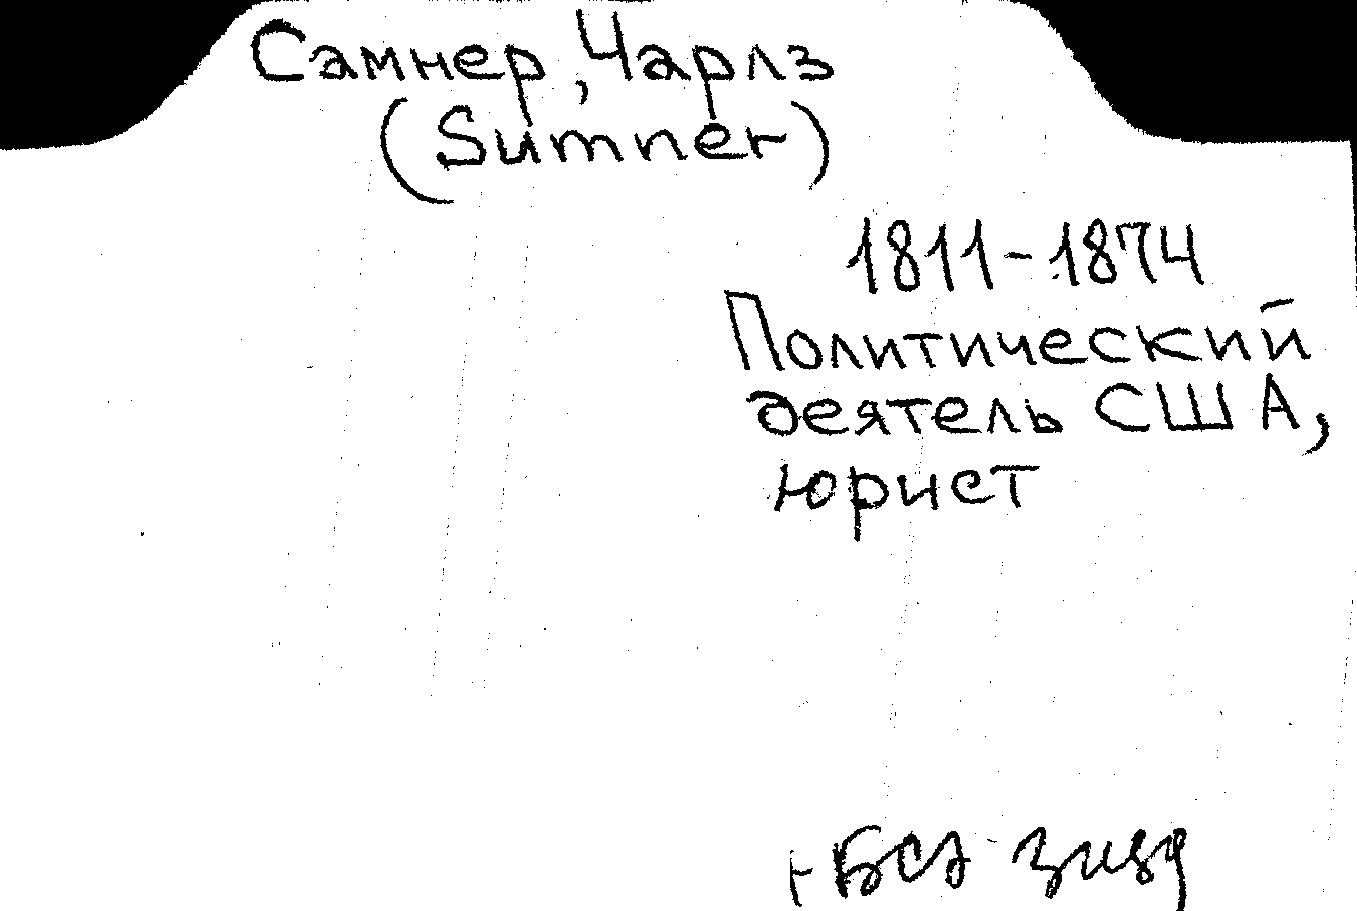 Самнер, Чарлз
(Sumner)
1811-1874
Политический
деятель США,
юрист
+ БСЭ